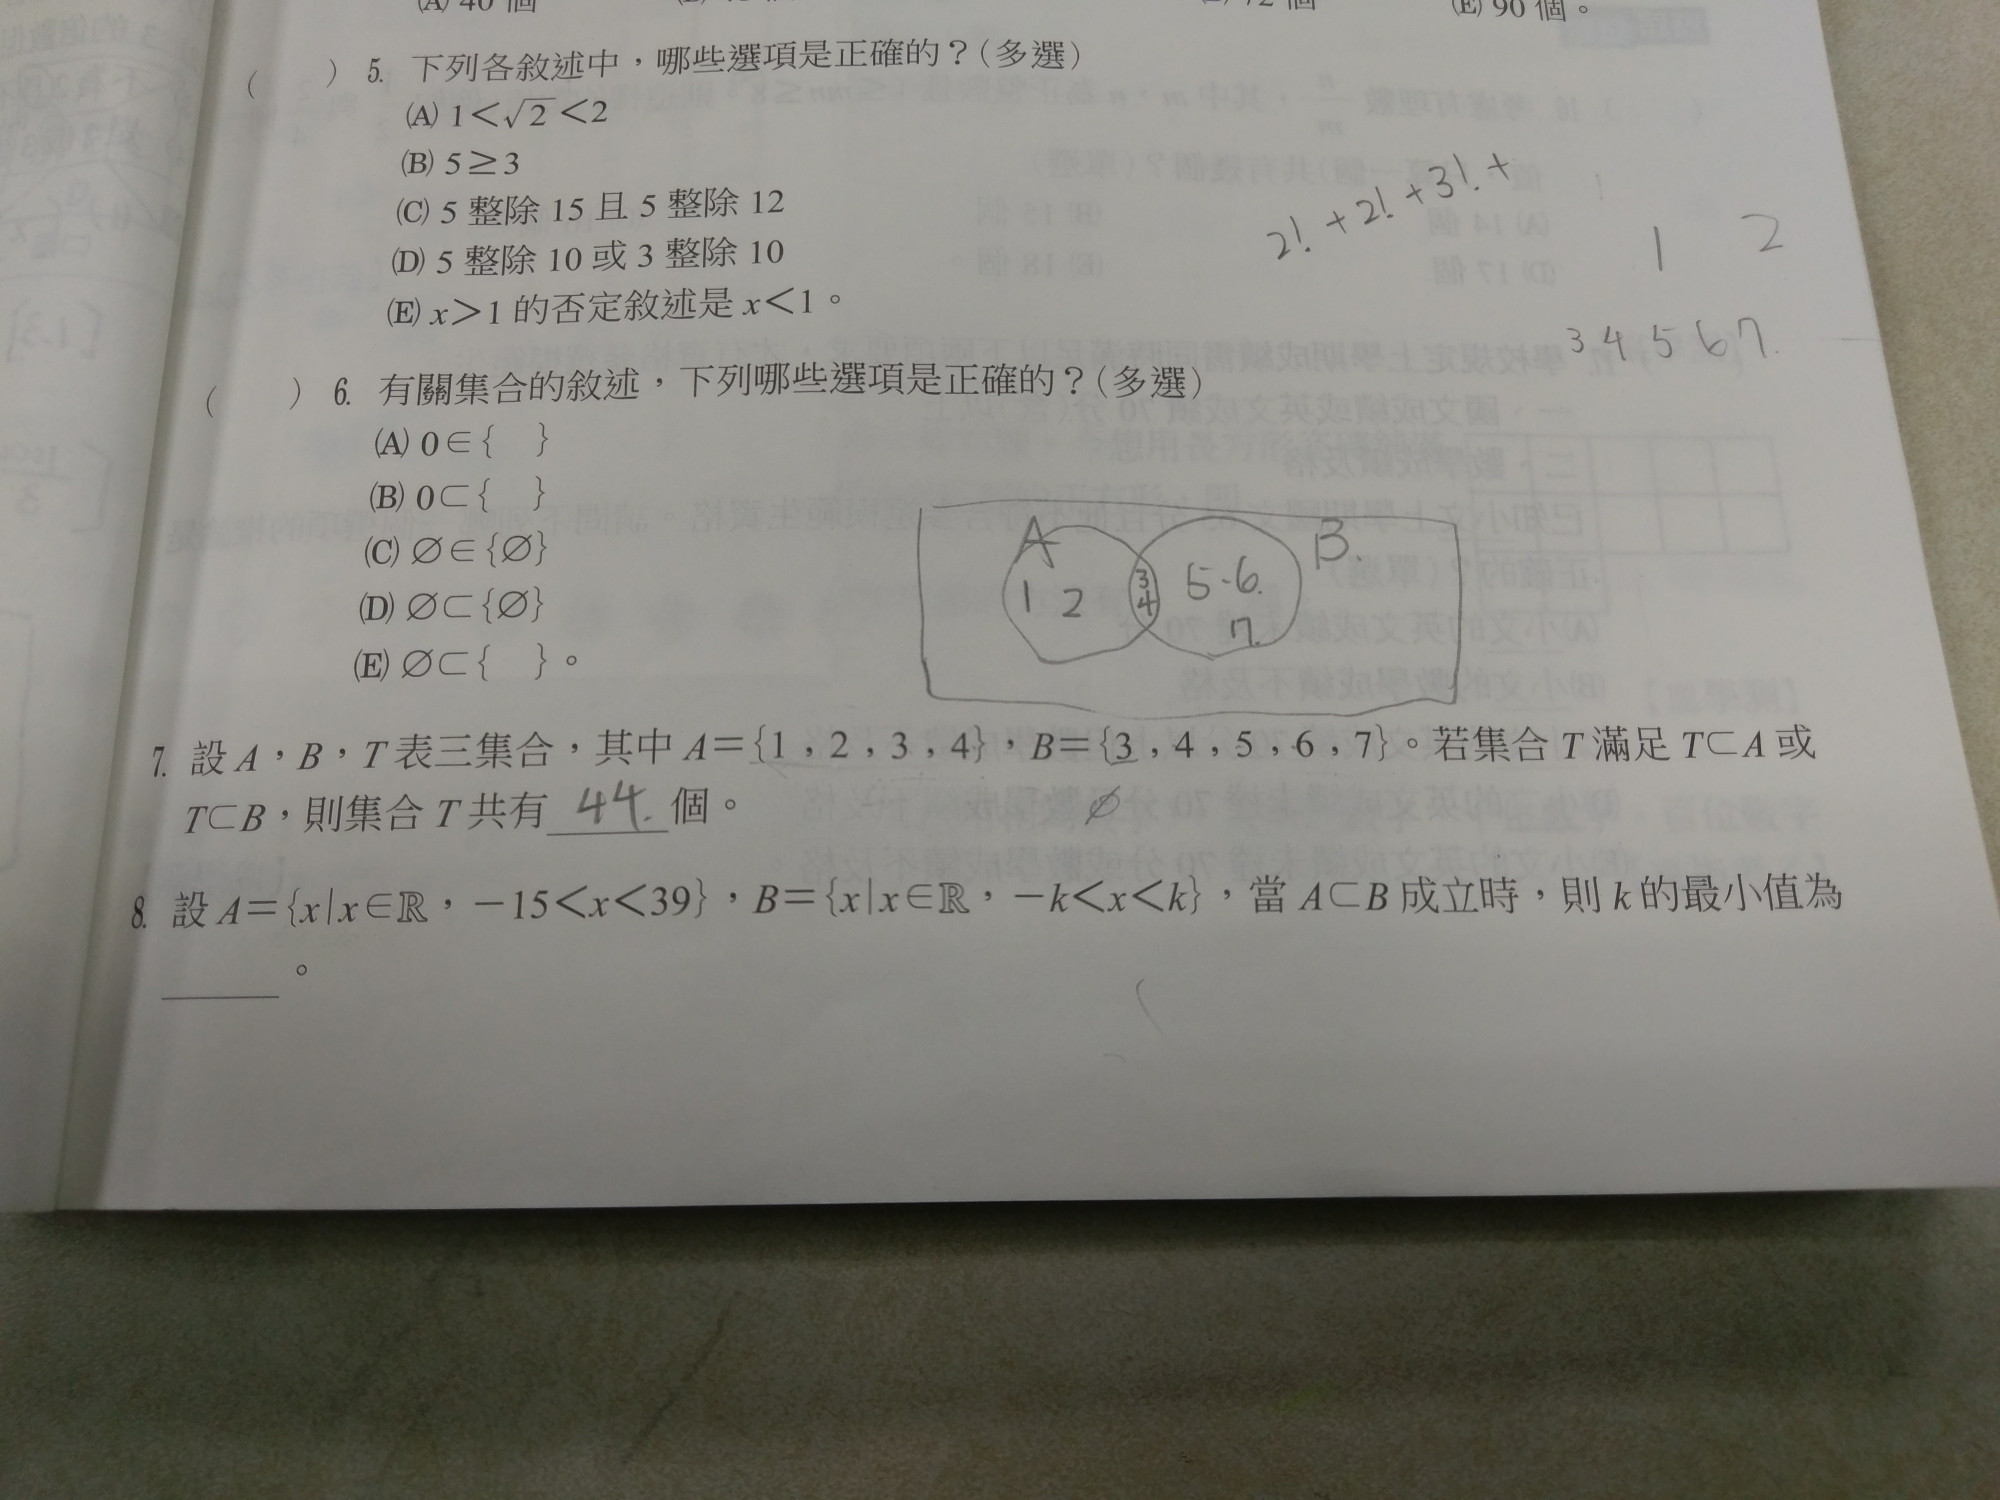 (A) 40 個 72 個 (E) 90 個。
( ) 5. 下列各敘述中，哪些選項是正確的？(多選)
(A) 1＜√2＜2
(B) 5≥3
(C) 5 整除 15 且 5 整除 12
(D) 5 整除 10 或 3 整除 10
(E) x＞1 的否定敘述是 x＜1。
2! + 2! + 3! +
1 2
3 4 5 6 7.
( ) 6. 有關集合的敘述，下列哪些選項是正確的？(多選)
(A) 0∈{ }
(B) 0⊂{ }
(C) ∅∈{∅}
(D) ∅⊂{∅}
(E) ∅⊂{ }。
A B.
1 2 3 4 5.6. 7.
7. 設 A，B，T 表三集合，其中 A＝{1，2，3，4}，B＝{3，4，5，6，7}。若集合 T 滿足 T⊂A 或
T⊂B，則集合 T 共有 44. 個。
∅
8. 設 A＝{x|x∈ℝ，−15＜x＜39}，B＝{x|x∈ℝ，−k＜x＜k}，當 A⊂B 成立時，則 k 的最小值為
____。